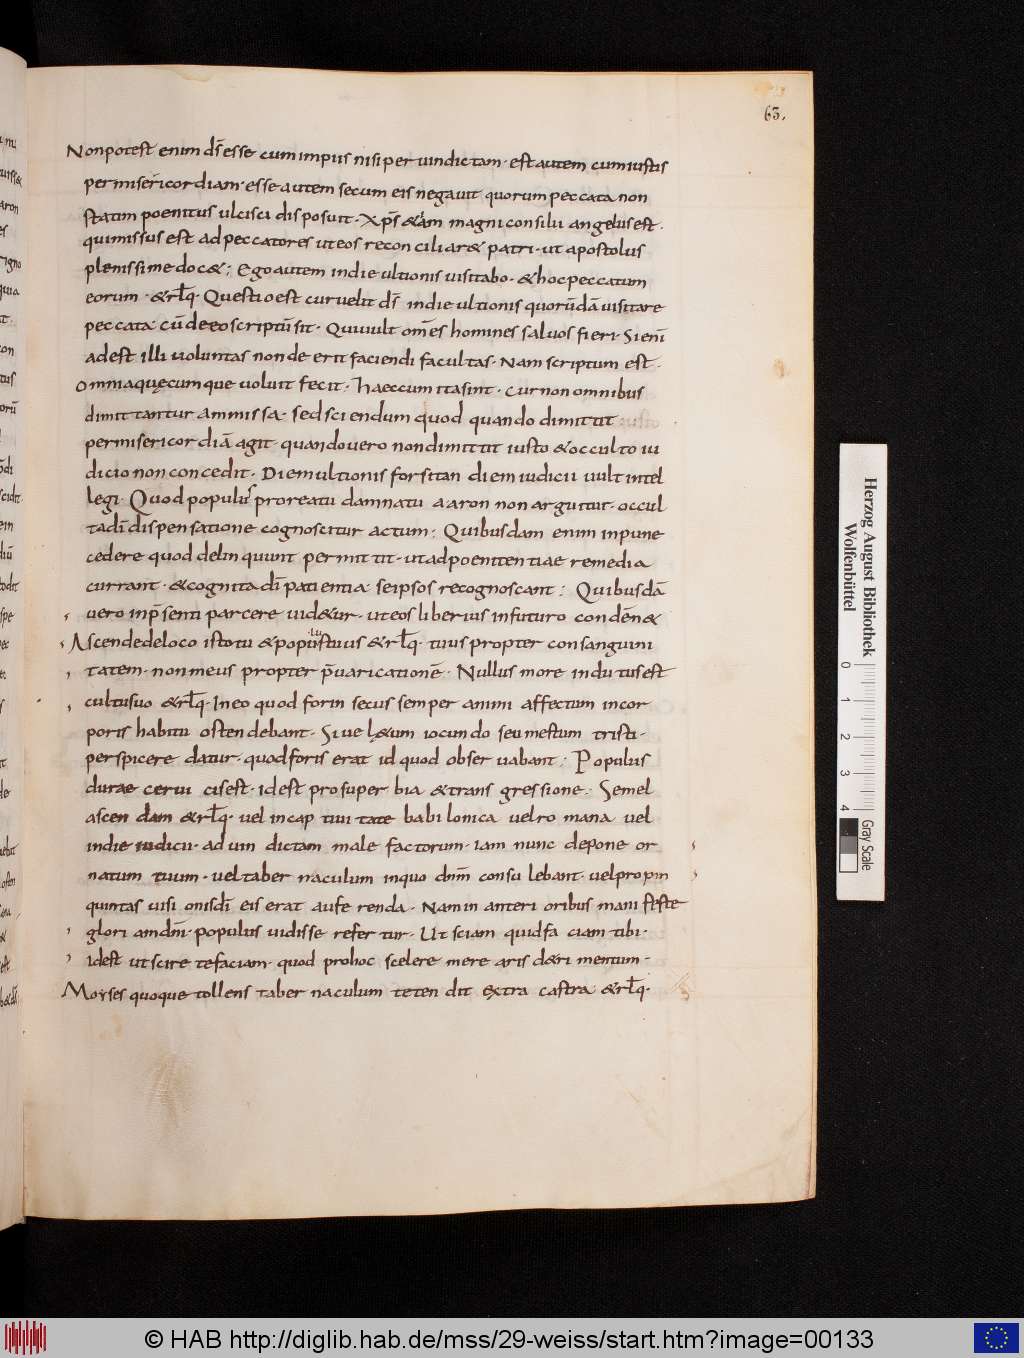 63.
Non potest enim dr̄ esse cum impiis nisi per uindictam · est autem cum iustis
per misericordiam · esse autem secum eis negauit quorum peccata non
statim poenitus ulcisci disposuit · Xp̄s & iam magni consilii angelus est ·
qui missus est ad peccatores ut eos reconciliar& patri · ut apostolus
plenissime doc& ; Ego autem in die ultionis uisitabo · & hoc peccatum
eorum · & rl̄q · Questio est cur uelit dr̄ in die ultionis quorūdā uisitare
peccata · cū de eo scriptū sit · Qui uult om̄es homines saluos fieri · Si enī
adest illi uoluntas non deerit faciendi facultas · Nam scriptum est ·
Omnia quęcumque uoluit fecit · Haec cum ita sint · cur non omnibus
dimittantur ammissa · sed sciendum quod quando dimittit
per misericordiā agit · quando uero non dimittit iusto & occulto iu
dicio non concedit · Diem ultionis forsitan diem iudicii uult intel
legi · Quod populus pro reatu damnatu aaron non arguitur · occul
ta dī dispensatione cognoscitur actum ; Quibusdam enim inpune
cedere quod delinquunt permittit · ut ad poenitentiae remedia
currant · & cognita dī patientia · seipsos recognoscant ; Quibusdā
uero in p̄senti parcere uid&ur · ut eos liberius in futuro condēn&
Ascende de loco isto tu & populus tuus & rl̄q · tuus propter consanguini
tatem · non meus propter p̄uaricationē · Nullus more indutus est
cultu suo & rl̄q · In eo quod forinsecus semper animi affectum incor
poris habitu ostendebant · Siue l&um iocundo seu mestum tristi ·
perspicere datur · quod foris erat id quod obseruabant ; Populus
durae ceruicis est · id est pro superbia & transgressione · Semel
ascendam & rl̄q · uel in captiuitate babilonica uel romana uel
in die iudicii · ad uindictam male factorum · iam nunc depone or
natum tuum · uel tabernaculum in quo dnm̄ consulebant · uel propin
quintas uisionis dī eis erat auferenda · Nam in anterioribus manifeste
gloriam dnī · populus uidisse refertur · Ut sciam quid faciam tibi ·
id est ut scire te faciam · quod pro hoc scelere merearis d&rimentum ·
Moyses quoque tollens tabernaculum tetendit extra castra & rl̄q ·
Herzog August Bibliothek
Wolfenbüttel
0 1 2 3 4
Gray Scale
© HAB http://diglib.hab.de/mss/29-weiss/start.htm?image=00133